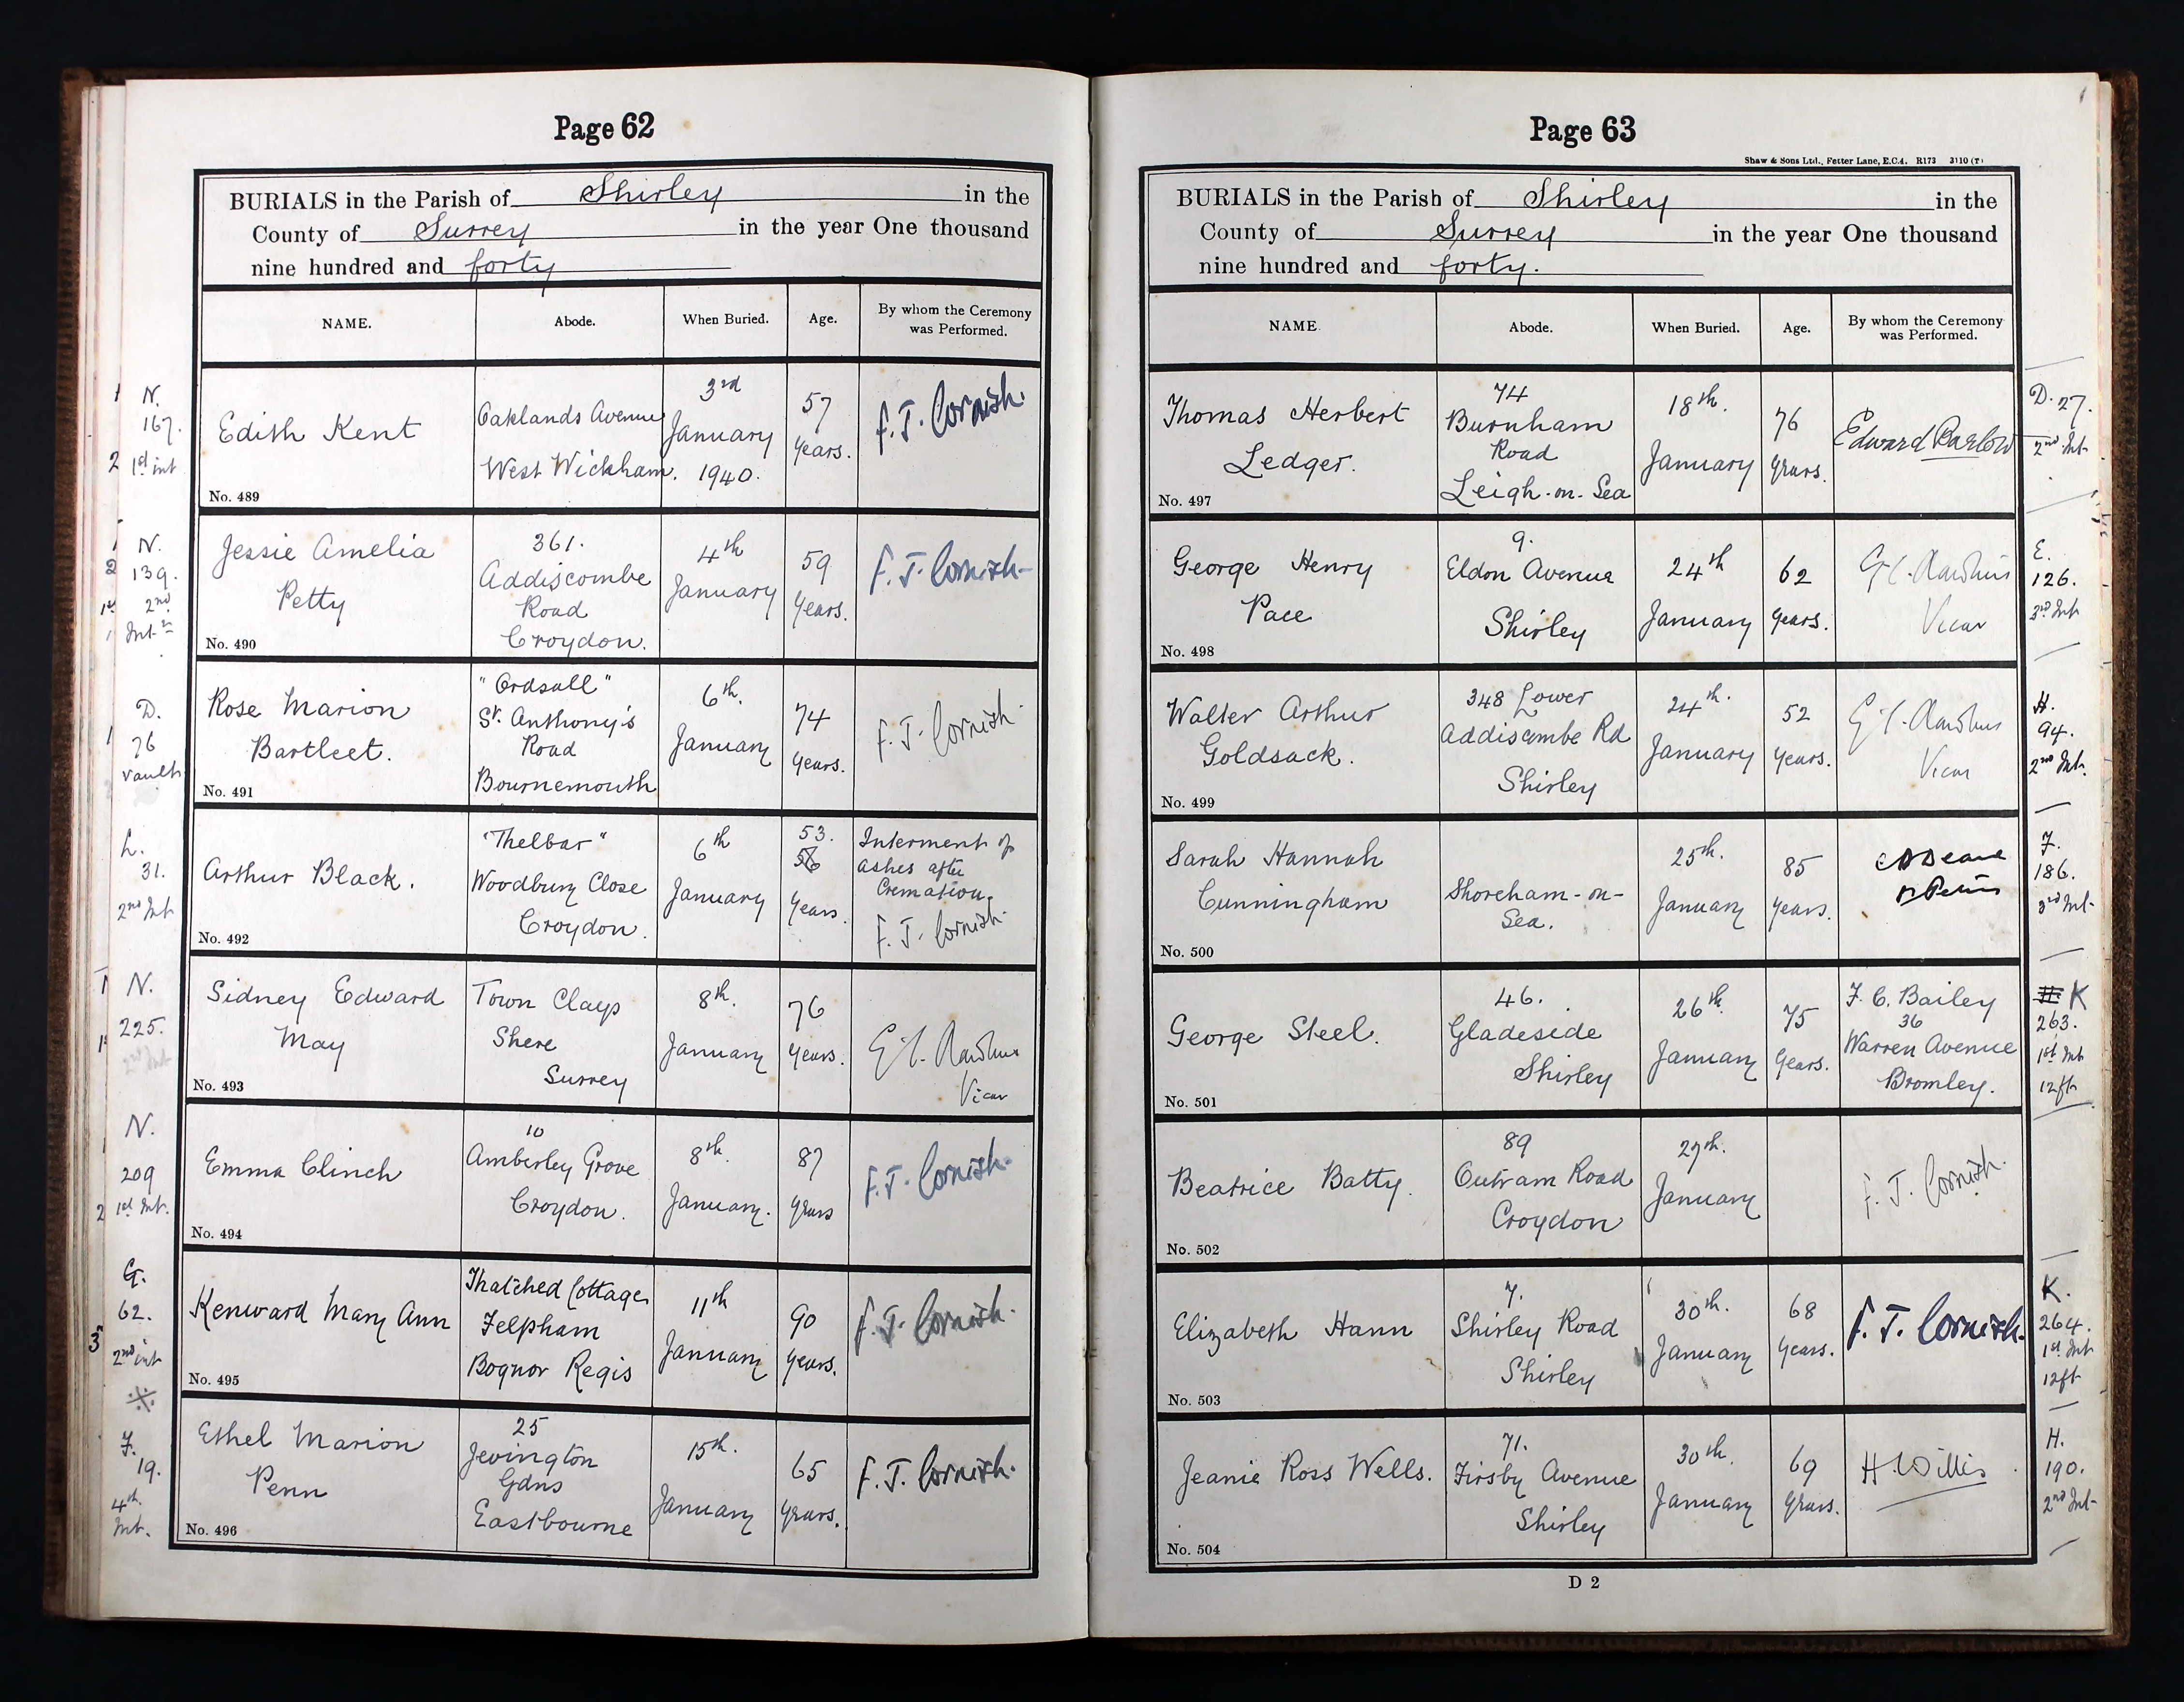 Page 62
BURIALS in the Parish of Shirley in the
County of Surrey in the year One thousand
nine hundred and forty
NAME. Abode. When Buried. Age. By whom the Ceremony was Performed.
N.
167.
1st int
Edith Kent
No. 489
Oaklands Avenue
West Wickham.
3rd
January
1940.
57
Years.
F. J. Cornish.
N.
139.
2nd
Int
Jessie Amelia
Petty
No. 490
361.
Addiscombe
Road
Croydon.
4th
January
59
Years.
F. J. Cornish
D.
76
Vault
Rose Marion
Bartleet.
No. 491
"Ordsall"
St. Anthony's
Road
Bournemouth
6th.
January
74
Years.
F. J. Cornish
L.
31.
2nd Int
Arthur Black.
No. 492
"Thelbar"
Woodbury Close
Croydon.
6th
January
53.
56
Years.
Interment of
Ashes after
Cremation.
F. J. Cornish
N.
225.
2nd Int
Sidney Edward
May
No. 493
Town Clays
Shere
Surrey
8th.
January
76
Years.
Vicar
N.
209
1st Int.
Emma Clinch
No. 494
10
Amberley Grove
Croydon.
8th.
January.
87
Years
F. J. Cornish.
G.
62.
2nd int
Kenward Mary Ann
No. 495
Thatched Cottage
Felpham
Bognor Regis
11th
January
90
Years.
F. J. Cornish.
F.
19.
4th.
Int.
Ethel Marion
Penn
No. 496
25
Jevington
Gdns
Eastbourne
15th.
January
65
Years.
F. J. Cornish.
Page 63
Shaw & Sons Ltd., Fetter Lane, E.C.4. R173 3110 (T)
BURIALS in the Parish of Shirley in the
County of Surrey in the year One thousand
nine hundred and forty.
NAME Abode. When Buried. Age. By whom the Ceremony was Performed.
Thomas Herbert
Ledger.
No. 497
74
Burnham
Road
Leigh-on-Sea
18th.
January
76
Years.
Edward Barlow
D. 27.
2nd Int
George Henry
Pace
No. 498
9.
Eldon Avenue
Shirley
24th
January
62
Years.
Vicar
E.
126.
3rd Int
Walter Arthur
Goldsack.
No. 499
348 Lower
Addiscombe Rd
Shirley
24th.
January
52
Years.
Vicar
H.
94.
2nd Int.
Sarah Hannah
Cunningham
No. 500
Shoreham-on-
Sea.
25th.
January
85
Years.
F.
186.
3rd Int
George Steel.
No. 501
46.
Gladeside
Shirley
26th.
January
75
Years.
F. C. Bailey
36
Warren Avenue
Bromley.
H. K
263.
1st Int
12ft
Beatrice Batty.
No. 502
89
Outram Road
Croydon
27th.
January
F. J. Cornish.
Elizabeth Hann
No. 503
7.
Shirley Road
Shirley
30th.
January
68
Years.
F. J. Cornish.
K.
264.
1st Int
12ft
Jeanie Ross Wells.
No. 504
71.
Firsby Avenue
Shirley
30th.
January
69
Years.
H. Willis
H.
190.
2nd Int
D 2